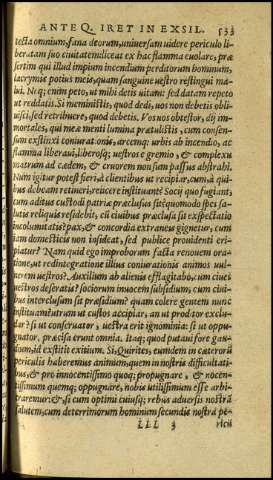 ANTE Q. IRET IN EXSIL. 533
tecta omnium, fana deorum, uniuersam uidere periculo li-
beratam suo ciuitatem: liceat ex hac flamma euolare, præ
sertim qui illud impium incendium perditorum hominum,
lacrymis potius meis, quam sanguine uestro restingui ma-
lui. Neq; enim peto, ut mihi detis uitam: sed datam repeto
ut reddatis. Si meministis, quod dedi, uos non debetis obli-
uisci: sed retribuere, quod debetis. Vos uos obtestor, dij im-
mortales, qui meæ menti lumina prætulistis, cum consen-
sum extinxi coniurationis, arcemq; urbis ab incendio, ac
flamma liberaui, liberosq; uestros e gremio, & complexu
matrum ad cædem, & cruorem non sum passus abstrahi.
Num igitur potest fieri, à clientibus ut recipiar, cum à qui
bus debeam retineri, reijcere instituant? Socij quo fugiant,
cum aditus custodi patriæ præclusus sit? quo modo spes sa-
lutis reliquis residebit, cũ ciuibus præclusa sit exspectatio
incolumitatis? pax, & concordia extraneis gignetur, cum
iam domesticis non insideat, sed publice prouidenti eri-
piatur? Nam quid ego improborum facta renouem ora-
tione, ut redintegratione illius coniurationis animos uul-
nerem uestros? Auxilium ab alienis efflagitabo, cum ciues
uestros deseratis? sociorum inuocem subsidium, cum ciui-
bus interclusum sit præsidium? quam colere gentem nunc
instituam? utrum ut custos accipiar, an ut proditor exclu-
dar? si ut conseruator, uestra erit ignominia: si ut oppu-
gnator, præcisa erunt omnia. Itaq; quod putaui fore gau-
dium, id exstitit exitium. Si, Quirites, eundem in cæterorũ
periculis haberemus animum, quem in nostris difficultati-
bus, & pro innocentissimo quoq; propugnare, & nocen-
tissimum quemq; oppugnare, nobis utilissimum esse arbi-
traremur: &, si cum optimi cuiusq; rebus aduersis nostrã
salutem, cum deterrimorum hominum secundis nostrã pe-
LLL 3 ricu